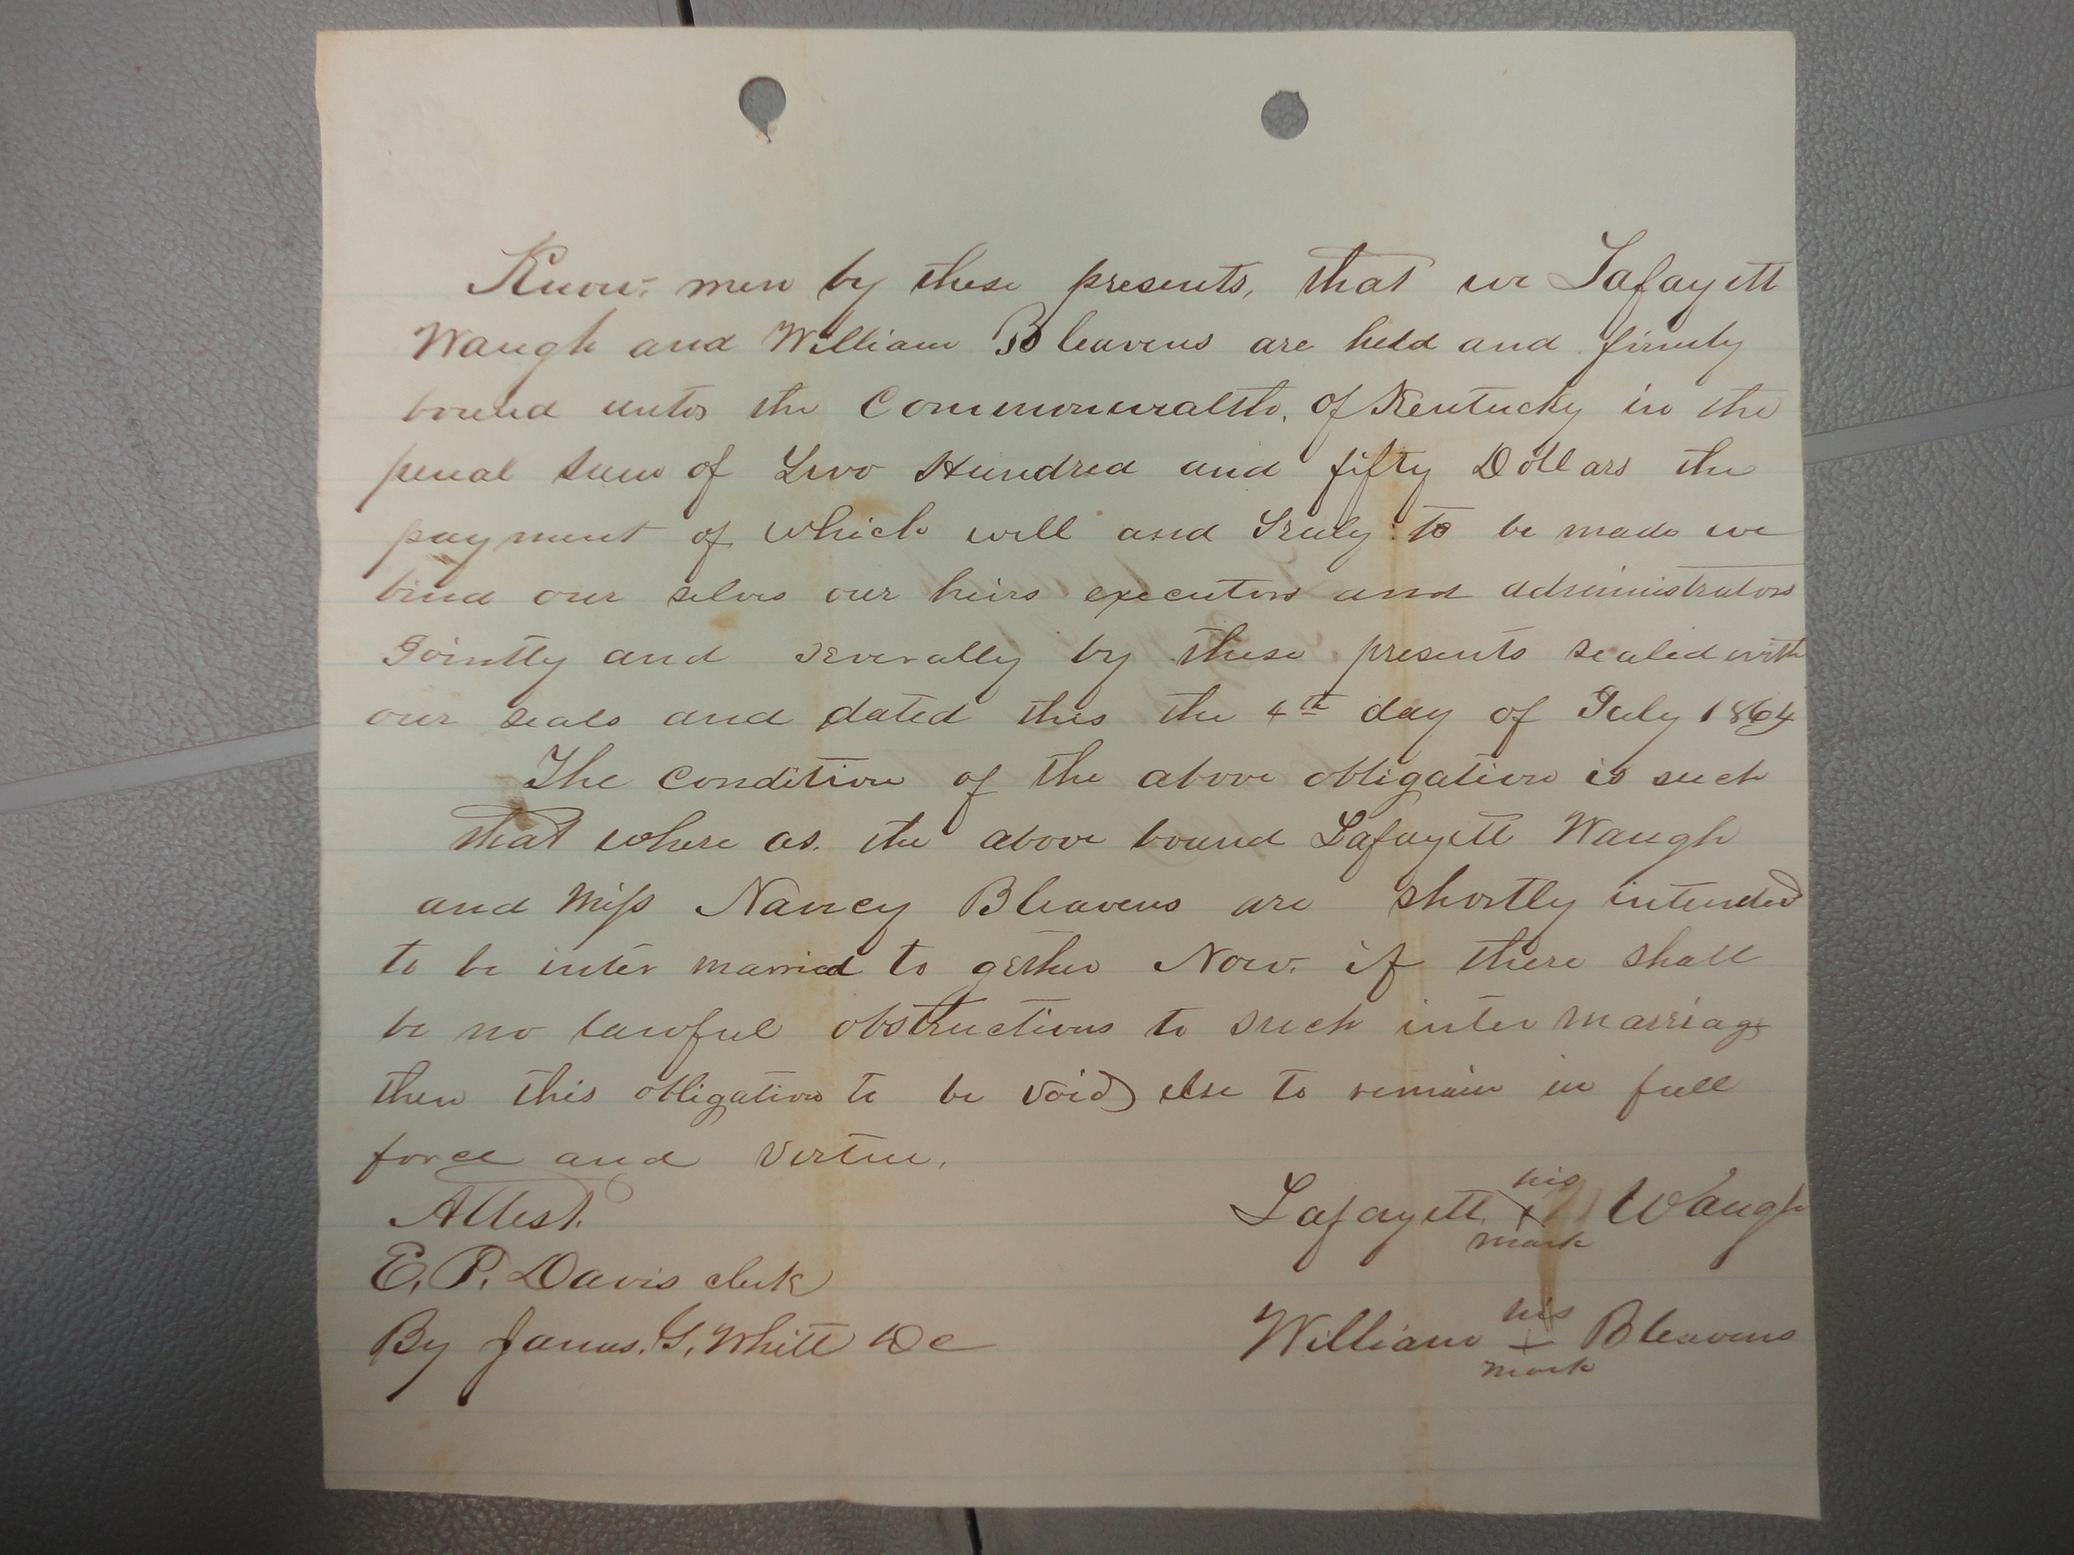 Know men by these presents, that we Lafayett
Waugh and William Bleavens are held and firmly
bound unto the Commonwealth. of Kentucky in the
penal sum of Two Hundred and fifty Dollars the
payment of which well and Truly to be made we
bind our selves our heirs executors and administrators
Jointly and severally by these presents sealed with
our seals and dated this the 4th day of July 1864
The condition of the above obligation is such
that where as. the above bound Lafayett Waugh
and Miss Nancy Bleavens are shortly intended
to be inter married to gether Now. if there shall
be no lawful obstructions to such inter marriage
then this obligation to be void else to remain in full
force and virtue.
Attest. Lafayett his x mark Waugh
E. P. Davis clerk
By James. G. White DC William his + mark Bleavens